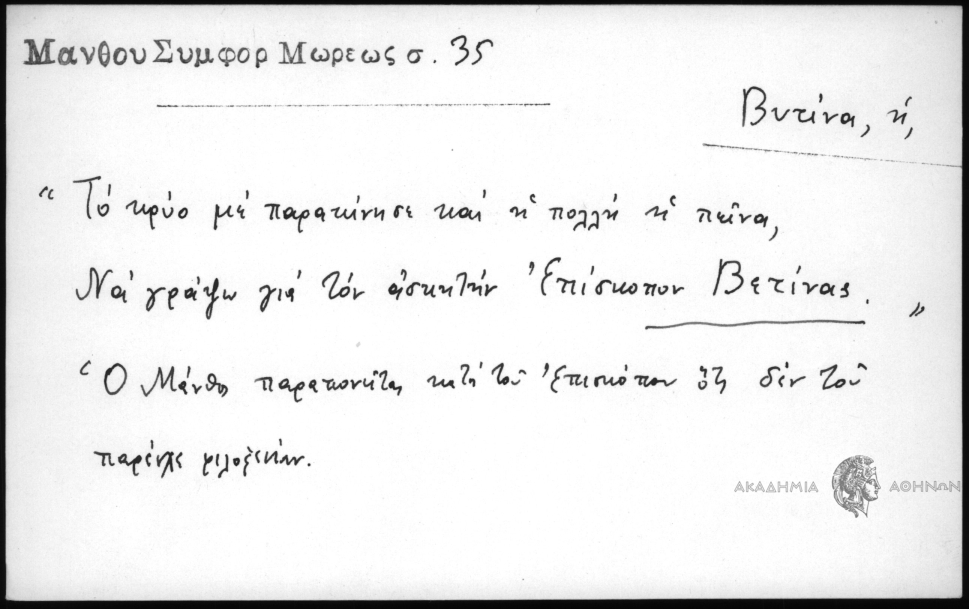 Μανθου Συμφορ Μωρεως σ. 35
Βυτίνα, ἡ,
“Τό κρύο μέ παρακίνησε καί ἡ πολλή ἡ πεῖνα,
Νά γράψω γιά τόν ἀσκητήν Ἐπίσκοπον Βετίνας.”
Ὁ Μάνθος παραπονεῖται κατά τοῦ Ἐπισκόπου ὅτι δέν τοῦ
παρέσχε φιλοξενίαν.
ΑΚΑΔΗΜΙΑ ΑΘΗΝΩΝ